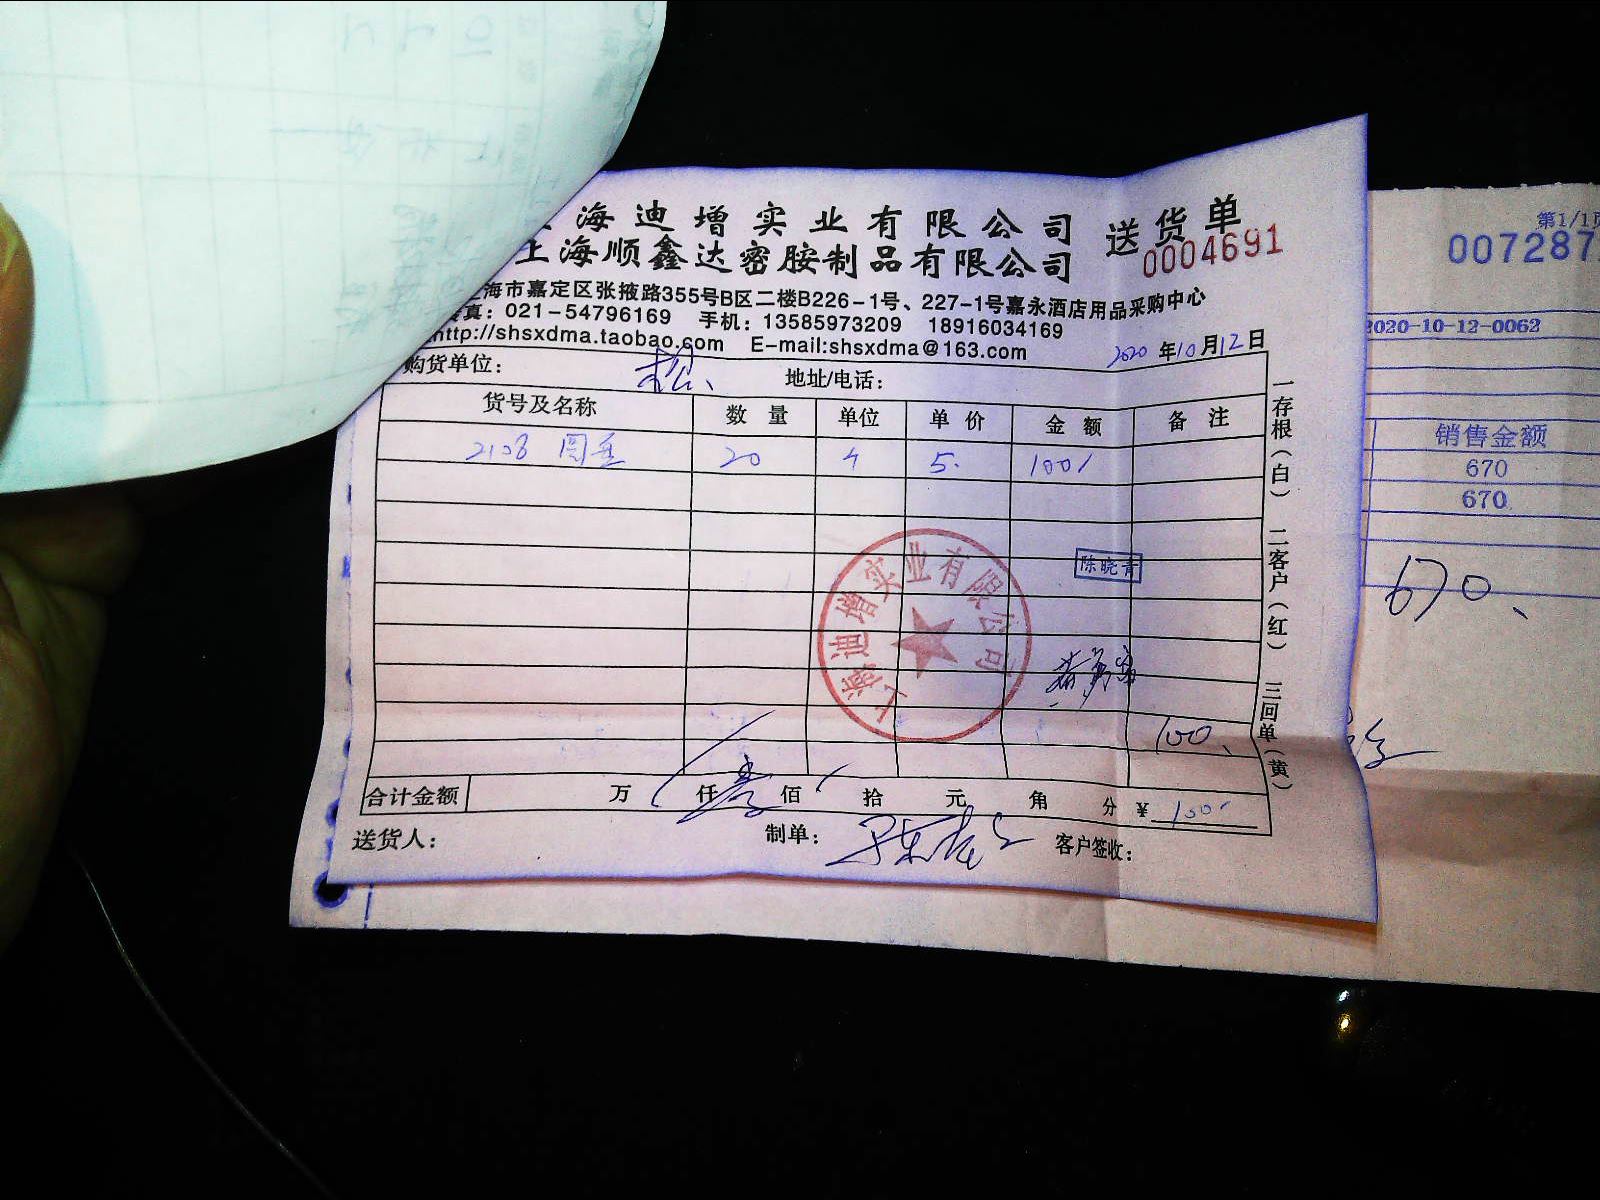 海迪增实业有限公司 送货单
上海顺鑫达密胺制品有限公司 0004691
海市嘉定区张掖路355号B区二楼B226-1号、227-1号嘉永酒店用品采购中心
真：021-54796169 手机：13585973209 18916034169
http://shsxdma.taobao.com E-mail:shsxdma@163.com
2020年10月12日
购货单位： 地址/电话：
货号及名称 数量 单位 单价 金额 备注
2108 圆 20 5. 100/
陈晓青
上海迪增实业有限公司
100、
合计金额 万 仟 壹佰 拾 元 角 分 ¥ 100
送货人： 制单： 客户签收：
一存根（白） 二客户（红） 三回单（黄）
第1/1页
007287
2020-10-12-0062
销售金额
670
670
670、